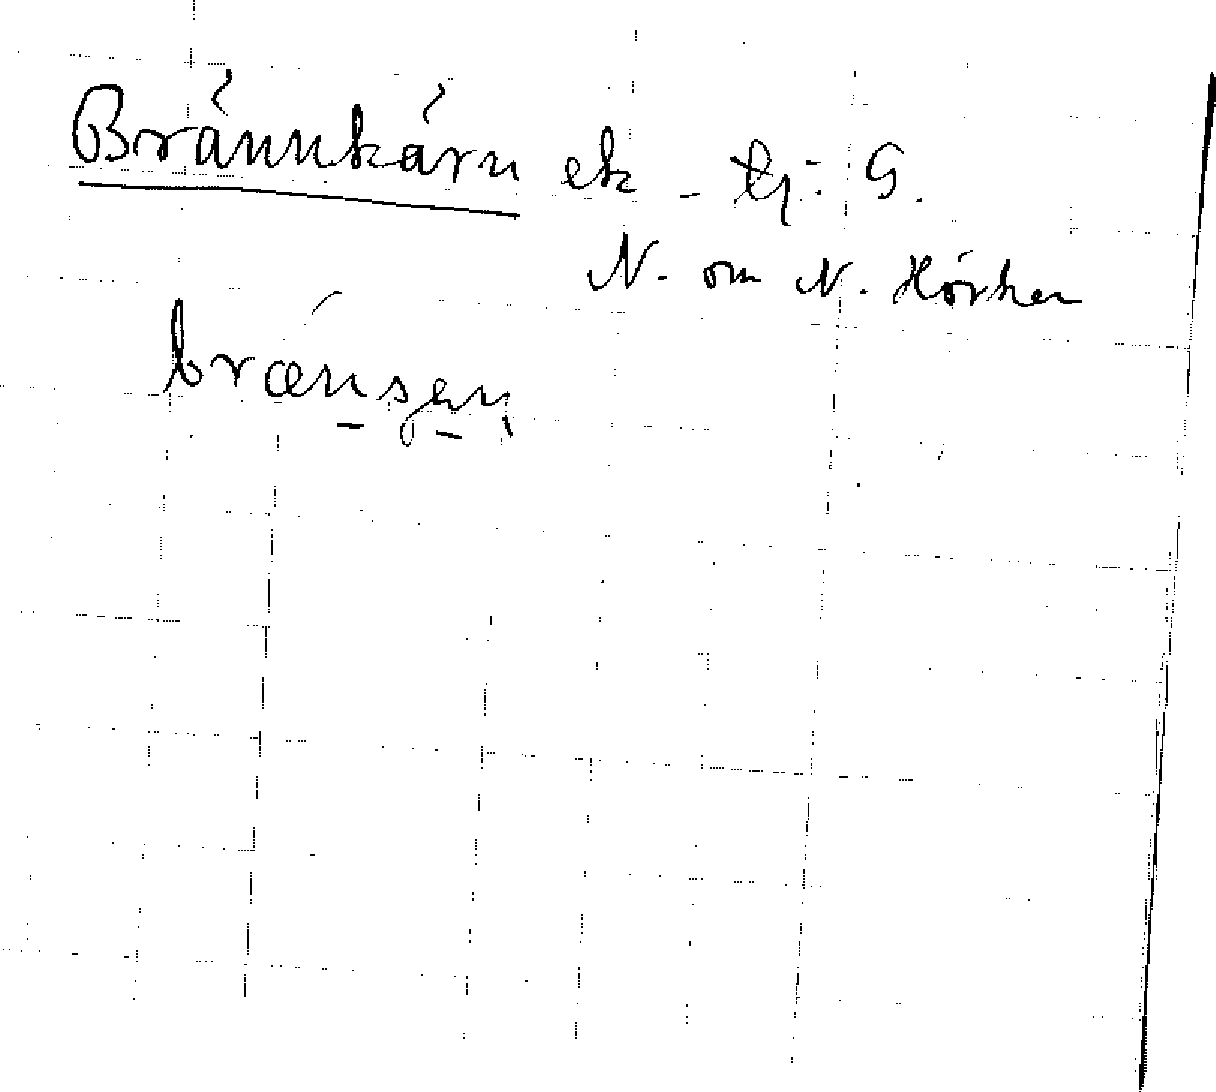 Brännkärn ek - tj: G.
N. om N. Hörken
brænsæn